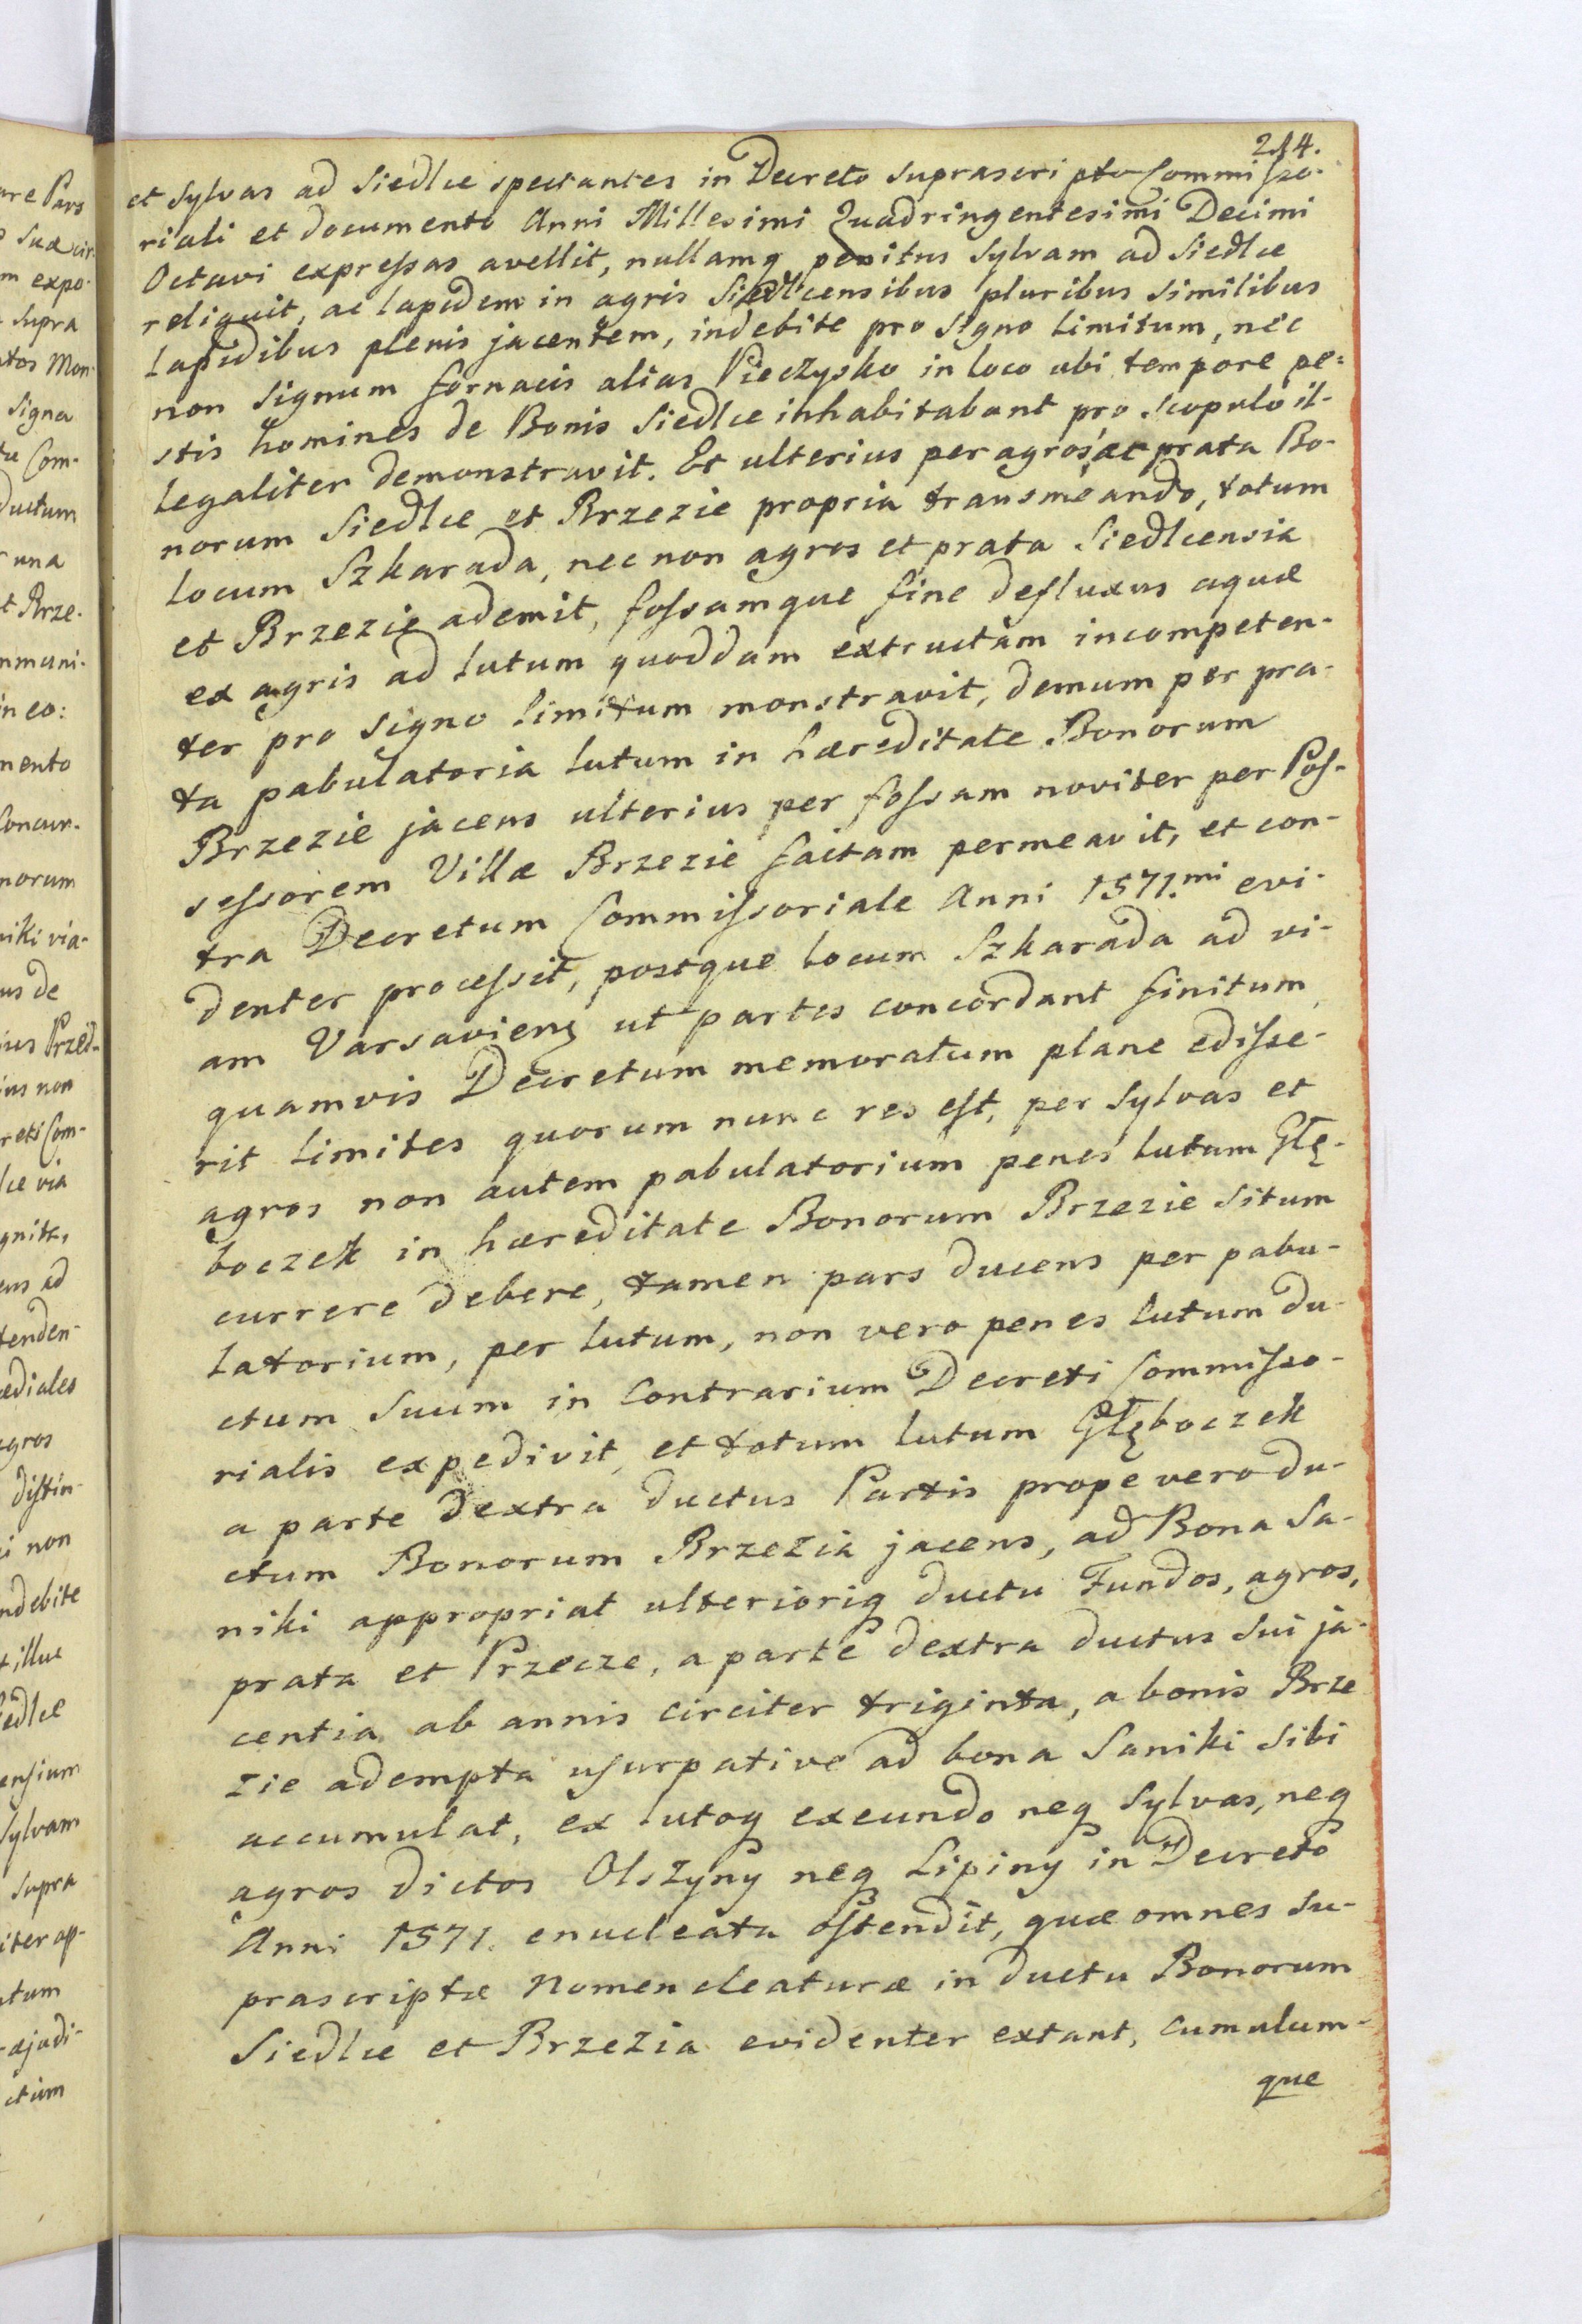 214.
et Sylvas ad Siedlce spectantes in Decreto suprascripto Commisso-
riali et documento Anni Millesimi Quadringentesimi Decimi
Octavi expressas avellit, nullamq penitus Sylvam ad Siedlce
reliquit, ac lapidem in agris Siedlcensibus pluribus similibus
lapidibus plenis jacentem, indebite pro signo limitum, nec
non signum fornacis alias Pieczysko in loco ubi tempore pe=
stis homines de Bonis Siedlce inhabitabant pro scopulo il-
legaliter demonstravit. Et ulterius per agros ac prata Bo-
norum Siedlce et Brzezie propria transmeando, totum
locum Szkarada, nec non agros et prata Siedlcensia
et Brzezie ademit, fossamque fine defluxus aquæ
ex agris ad lutum quoddam extructam incompeten-
ter pro signo limitum monstravit, demum per pra-
ta pabulatoria lutum in hæreditate Bonorum
Brzezie jacens ulterius per fossam noviter per Pos-
sessorem Villæ Brzezie factam permeavit, et con-
tra Decretum Commissoriale Anni 1571.mi evi-
denter processit, postque locum Szkarada ad vi-
am Varsavienş ut partes concordant finitum,
quamvis Decretum memoratum plane edisse-
rit limites quorum nunc res est, per sylvas et
agros non autem pabulatorium penes lutum Głę-
boczek in hæreditate Bonorum Brzezie situm
currere debere, tamen pars ducens per pabu-
latorium, per lutum, non vero penes lutum du-
ctum suum in contrarium Decreti Commisso-
rialis expedivit, et totum lutum Głęboczek
a parte dextra ductus Partis prope vero du-
ctum Bonorum Brzezia jacens, ad Bona Sa-
niki appropriat ulterioriq ductu Fundos, agros,
prata et Przecze, a parte dextra ductus sui ja-
centia ab annis circiter triginta, a bonis Brze
zie adempta usurpative ad bona Saniki sibi
accumulat, ex lutoq exeundo neq Sylvas, neq
agros dictos Olszyny neq Lipiny in Decreto
Anni 1571. enucleata ostendit, quæ omnes su-
prascriptæ Nomencleaturæ in ductu Bonorum
Siedlce et Brzezia evidenter extant, cumulum-
que